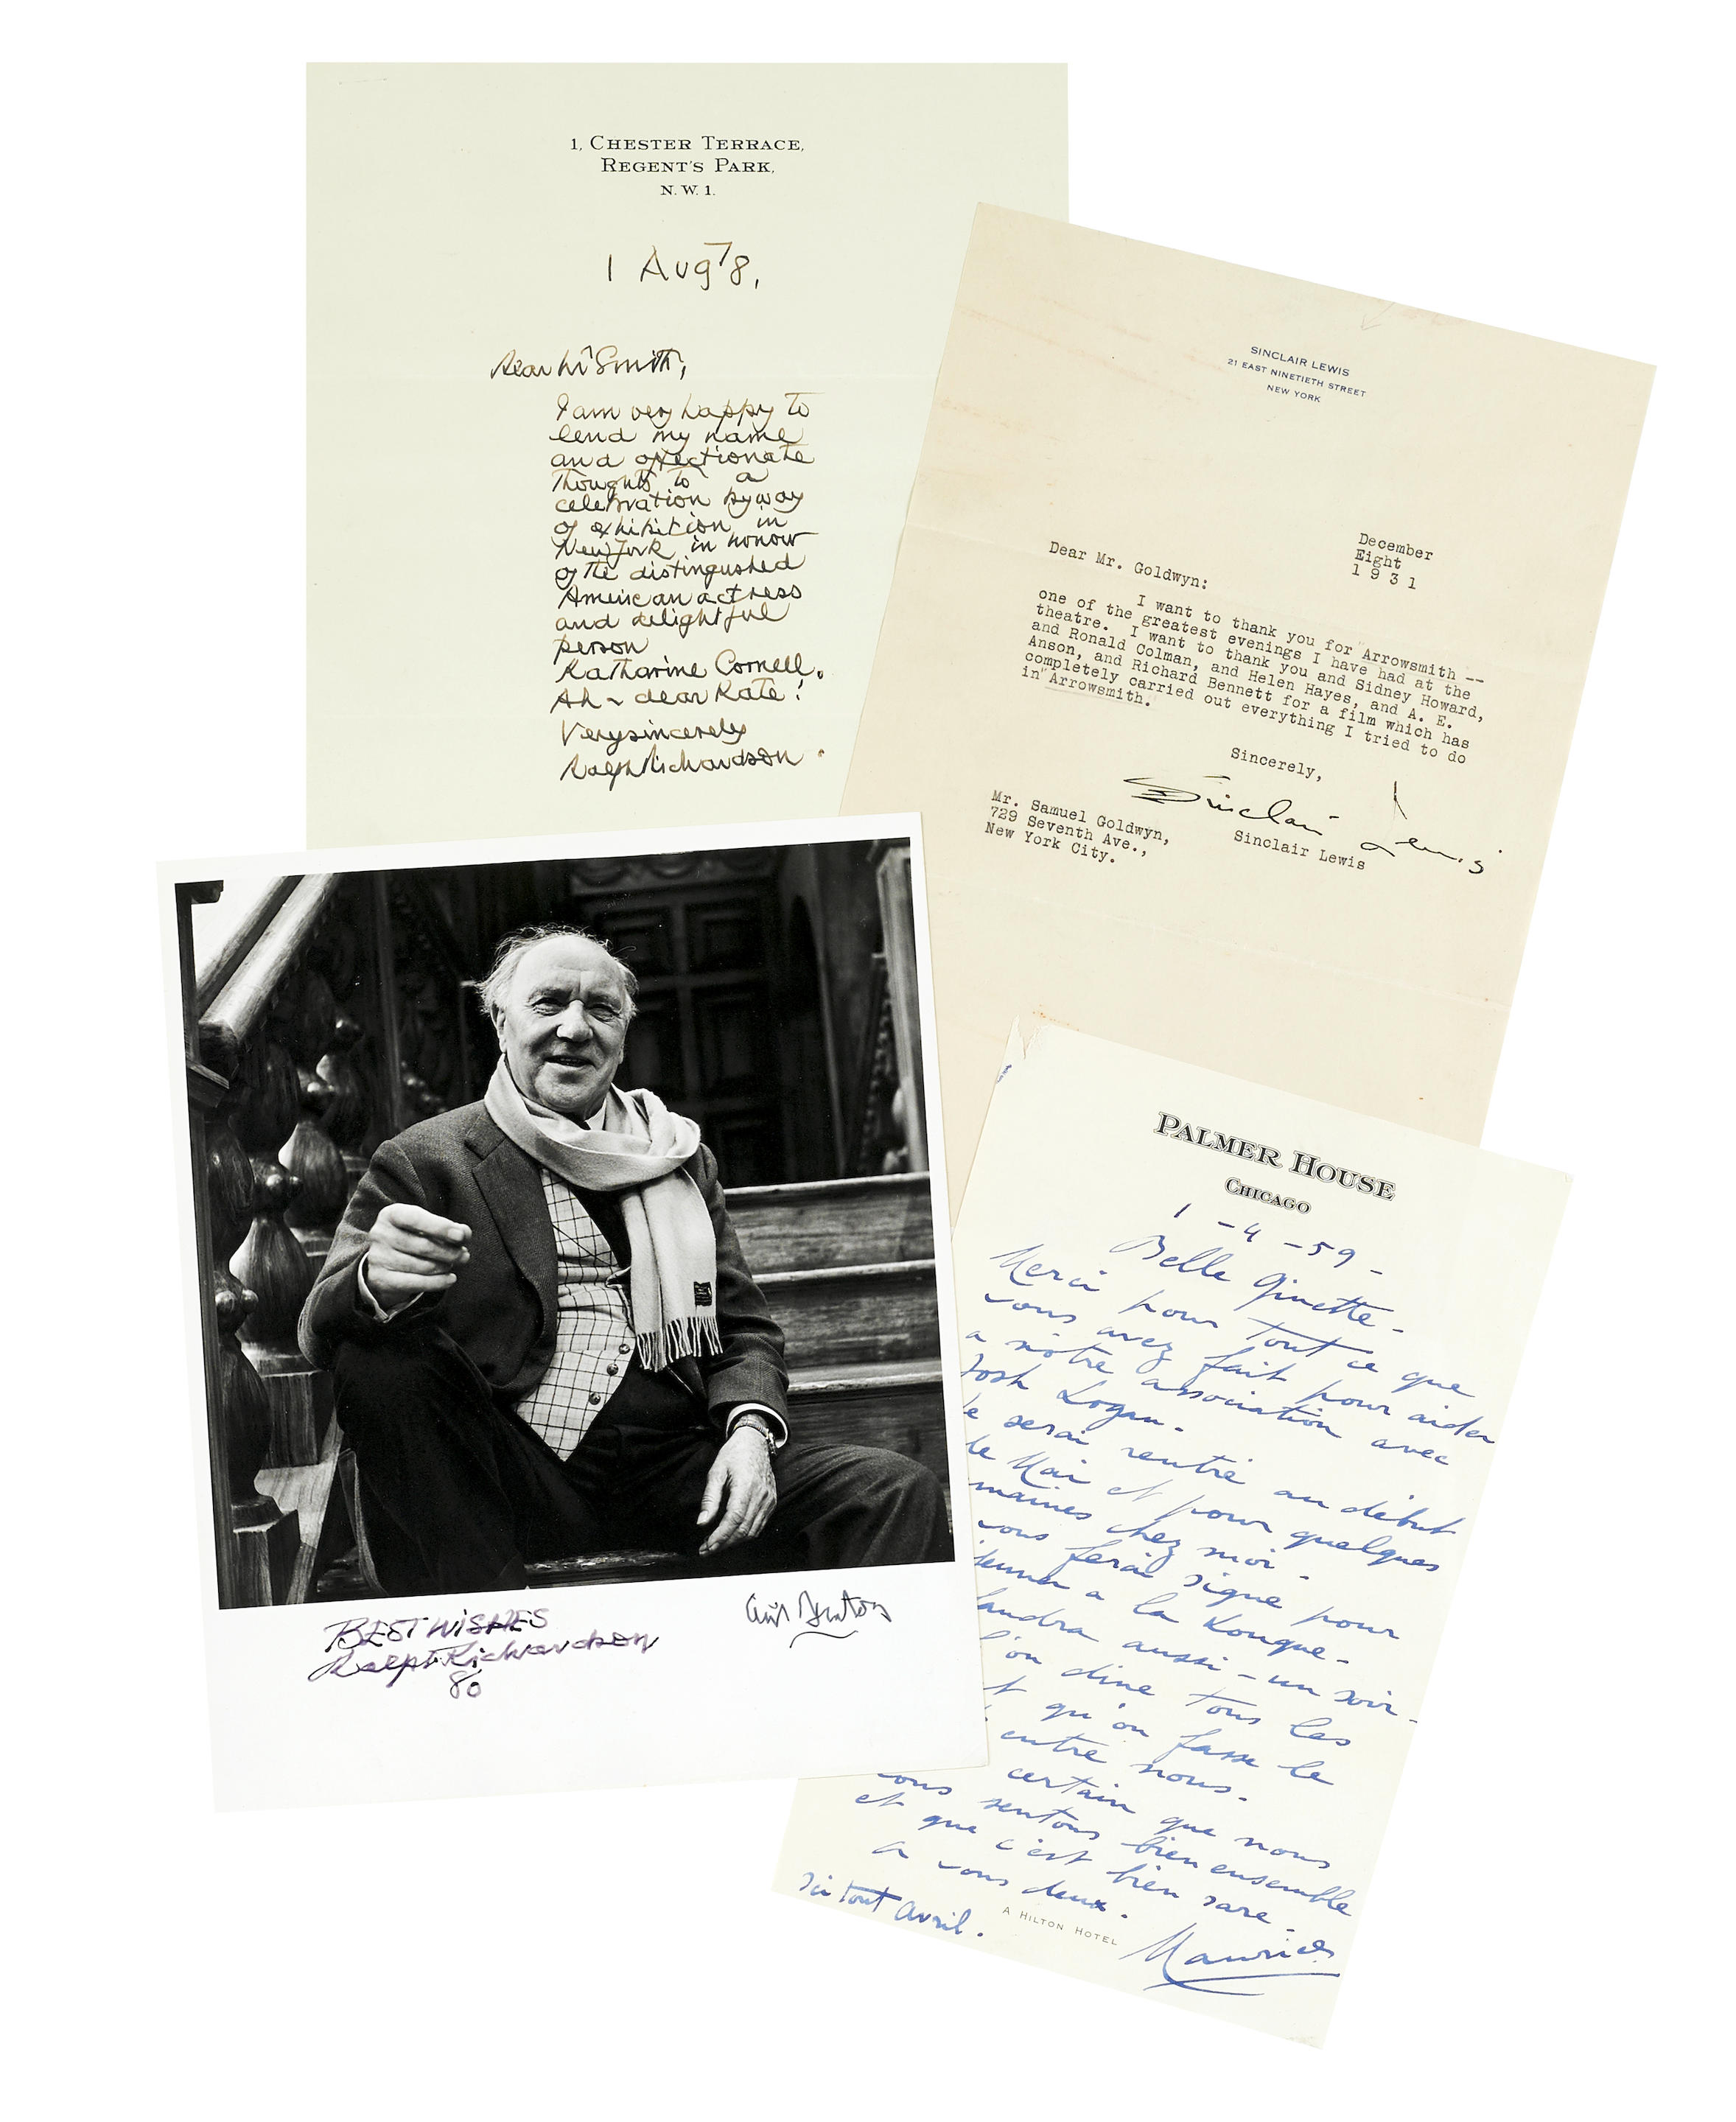 1, CHESTER TERRACE,
REGENT'S PARK,
N. W. 1.
1 Aug 78,
Dear Mr Smith,
I am very happy to
lend my name
and affectionate
thoughts to a
celebration by way
of exhibition in
New York in honour
of the distinguished
American actress
and delightful
person
Katharine Cornell.
Ah ~ dear Kate!
Very sincerely
Ralph Richardson.
SINCLAIR LEWIS
21 EAST NINETIETH STREET
NEW YORK
December
Eight
1 9 3 1
Dear Mr. Goldwyn:
I want to thank you for "Arrowsmith --
one of the greatest evenings I have had at the
theatre. I want to thank you and Sidney Howard,
and Ronald Colman, and Helen Hayes, and A. E.
Anson, and Richard Bennett for a film which has
completely carried out everything I tried to do
in "Arrowsmith."
Sincerely,
Sinclair Lewis
Sinclair Lewis
Mr. Samuel Goldwyn,
729 Seventh Ave.,
New York City.
BEST WISHES
Ralph Richardson
80
PALMER HOUSE
CHICAGO
1 - 4 - 59 -
Belle Ginette -
Merci pour tout ce que
vous avez fait pour aider
a nôtre association avec
Josh Logan.
Je serai rentré au début
de Mai et pour quelques
maines chez moi.
vous ferai signe pour
a la Kougue-
aussi - un soir -
l'on dine tous les
t qu'on fasse le
entre nous.
certain que nous
nous sentons bien ensemble
et que c'est bien rare.
a vous deux.
Maurice
Ici tout Avril.
A HILTON HOTEL